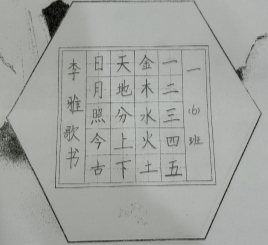 一(6)班
一二三四五
金木水火土
天地分上下
日月照今古
李雅歌书